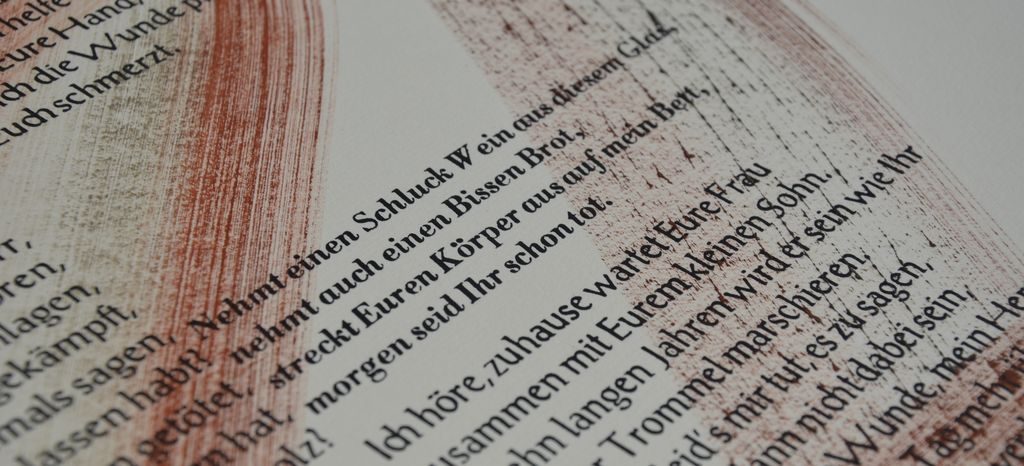 helfe
Eure Hand,
ich die Wunde
Euch schmerzt.
lagen,
gekämpft,
mals sagen,
lassen habt?
getötet,
hat,
Nehmt einen Schluck Wein aus diesem Glas,
nehmt auch einen Bissen Brot,
streckt Euren Körper aus auf mein Bett,
morgen seid Ihr schon tot.
Ich höre, zuhause wartet Eure Frau
zusammen mit Eurem kleinen Sohn.
zehn langen Jahren wird er sein wie Ihr
Trommel marschieren.
eid's mir tut, es zu sagen,
kann nicht dabei sein,
Wunde, mein Her
Tag mehr